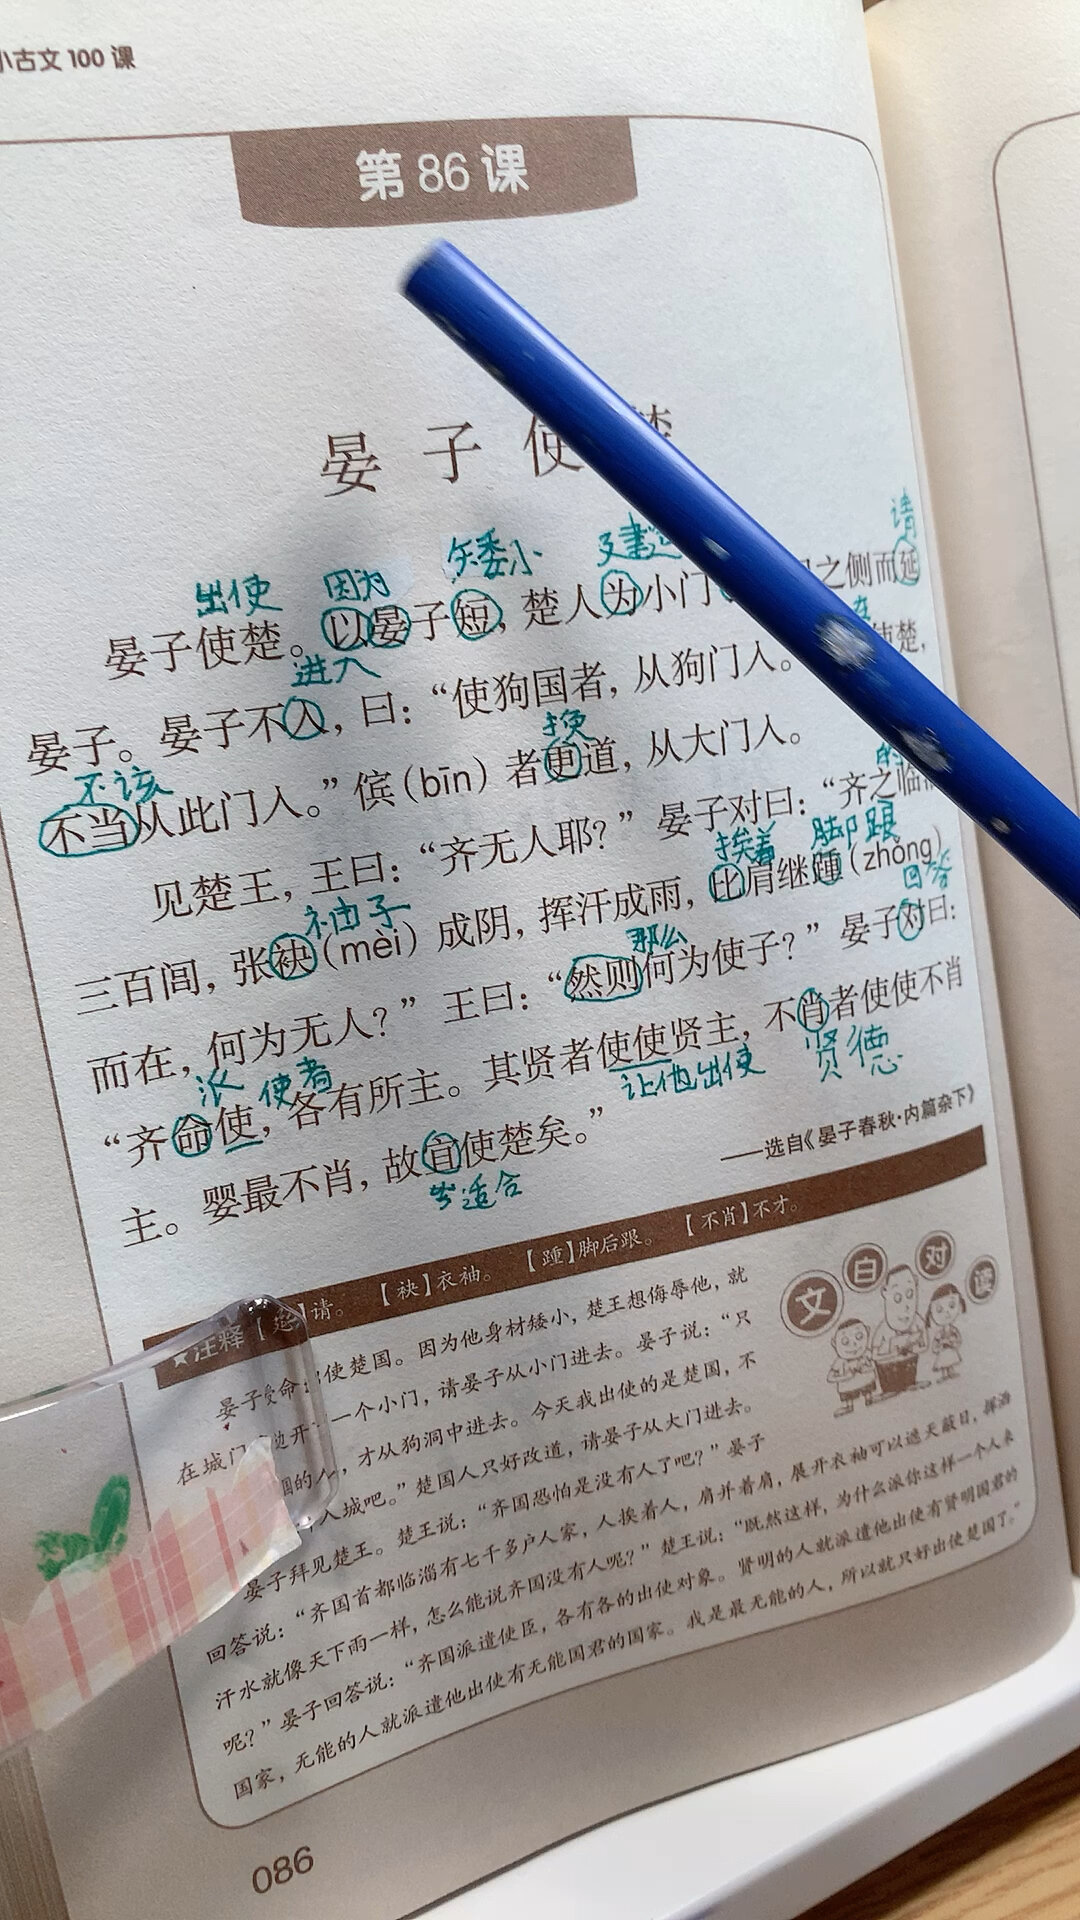 小古文 100 课
第 86 课
晏 子 使
出使 因为 矮小 建造 请
晏子使楚。以晏子短，楚人为小门 之侧而延
进入
晏子。晏子不入，曰：“使狗国者，从狗门入。 使楚，
不该 换
不当从此门入。”傧（bīn）者更道，从大门入。
的
见楚王，王曰：“齐无人耶？”晏子对曰：“齐之临
袖子 挨着 脚跟
三百闾，张袂（mèi）成阴，挥汗成雨，比肩继踵（zhǒng）
那么 回答
而在，何为无人？”王曰：“然则何为使子？”晏子对曰：
派 使者
“齐命使，各有所主。其贤者使使贤主，不肖者使使不肖
让他出使 贤德
主。婴最不肖，故宜使楚矣。”
适合
——选自《晏子春秋·内篇杂下》
★注释 【 】请。 【袂】衣袖。 【踵】脚后跟。 【不肖】不才。
文白对读
晏子受命 使楚国。因为他身材矮小，楚王想侮辱他，就
在城门 边开 一个小门，请晏子从小门进去。晏子说：“只
国的人，才从狗洞中进去。今天我出使的是楚国，不
入城吧。”楚国人只好改道，请晏子从大门进去。
晏子拜见楚王。楚王说：“齐国恐怕是没有人了吧？”晏子
回答说：“齐国首都临淄有七千多户人家，人挨着人，肩并着肩，展开衣袖可以遮天蔽日，挥洒
汗水就像天下雨一样，怎么能说齐国没有人呢？”楚王说：“既然这样，为什么派你这样一个人来
呢？”晏子回答说：“齐国派遣使臣，各有各的出使对象。贤明的人就派遣他出使有贤明国君的
国家，无能的人就派遣他出使有无能国君的国家。我是最无能的人，所以就只好出使楚国了。”
086